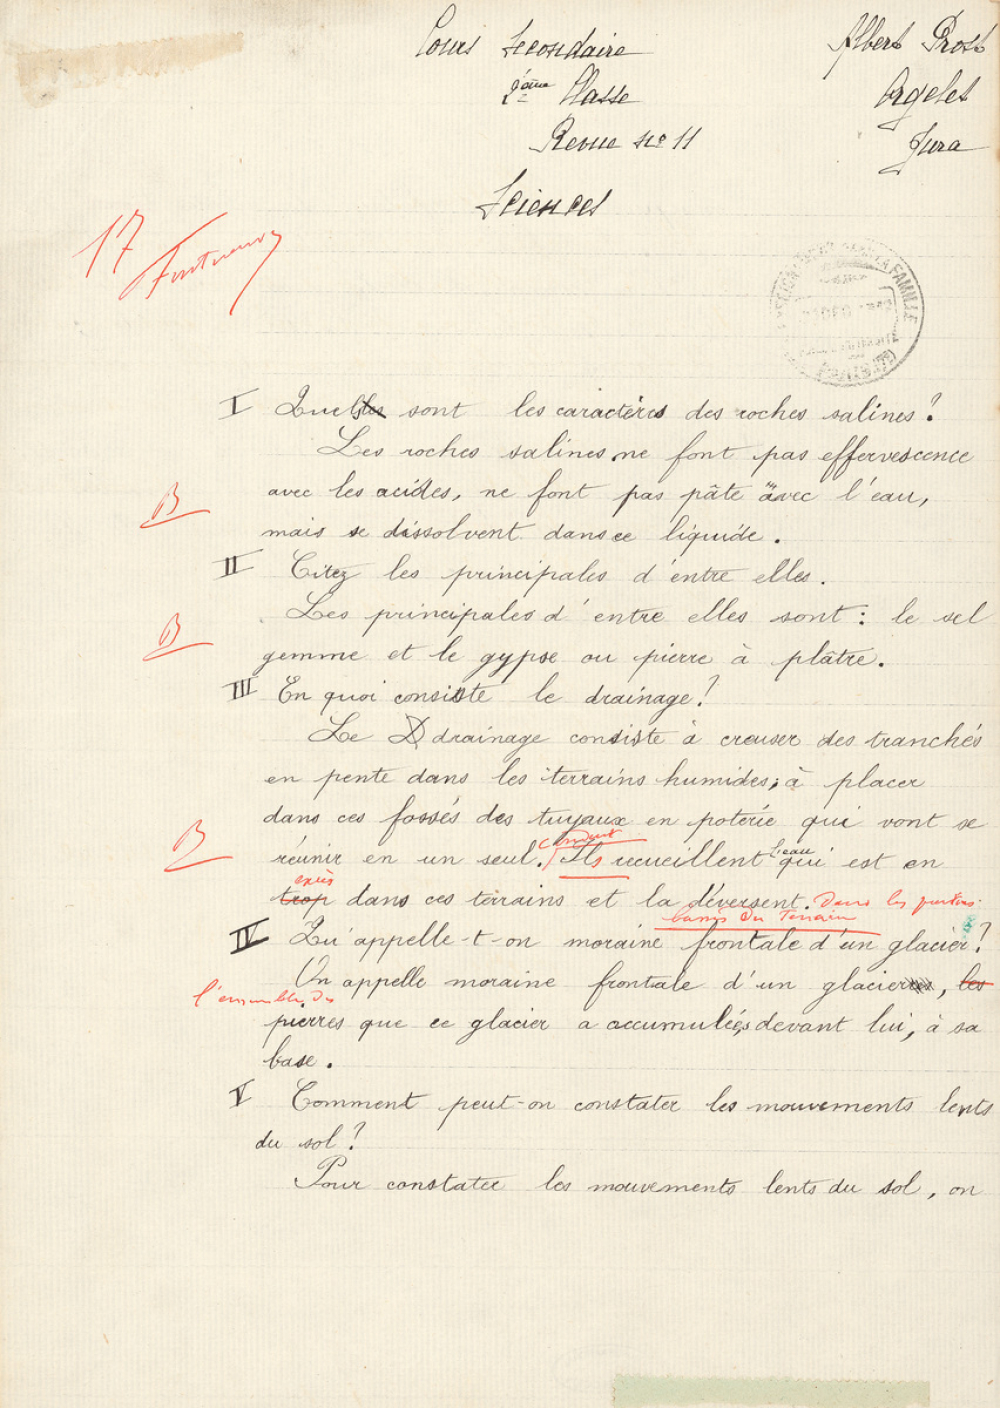 Cours Secondaire
Albert Prost
2ème Classe
Orgelet
Revue no 11
Jura
Sciences
17
FAMILLE
I Quelles sont les caractères des roches salines ?
Les roches salines ne font pas effervescence
avec les acides, ne font pas pâte avec l'eau,
B
mais se dissolvent dans ce liquide.
II Citez les principales d'entre elles.
Les principales d'entre elles sont : le sel
B
gemme et le gypse ou pierre à plâtre.
III En quoi consiste le drainage ?
Le D drainage consiste à creuser des tranchés
en pente dans les terrains humides, à placer
dans ces fossés des tuyaux en poterie qui vont se
B
réunir en un seul. Ils recueillent l'eau qui est en
excès
trop dans ces terrains et la déversent. Dans les parties
basses du Terrain
IV Qu'appelle-t-on moraine frontale d'un glacier ?
On appelle moraine frontale d'un glacier, les
l'ensemble des
pierres que ce glacier a accumulées devant lui, à sa
base.
V Comment peut-on constater les mouvements lents
du sol ?
Pour constater les mouvements lents du sol, on